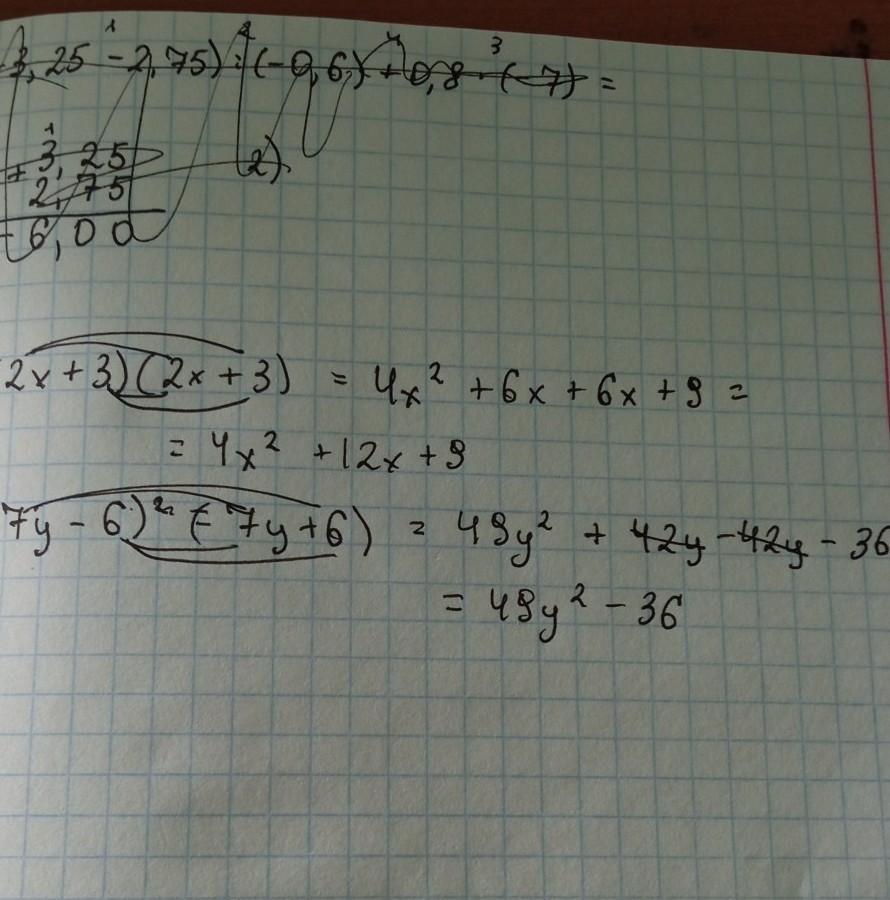 3,25 - 2,75) : (-0,6) + 0,8 · (-7) =
+ 3,25
2,75
- 6,00
2)
(2x+3)(2x+3) = 4x² + 6x + 6x + 9 =
= 4x² + 12x + 9
7y - 6)² (- 7y + 6) = 49y² + 42y - 42y - 36
= 49y² - 36